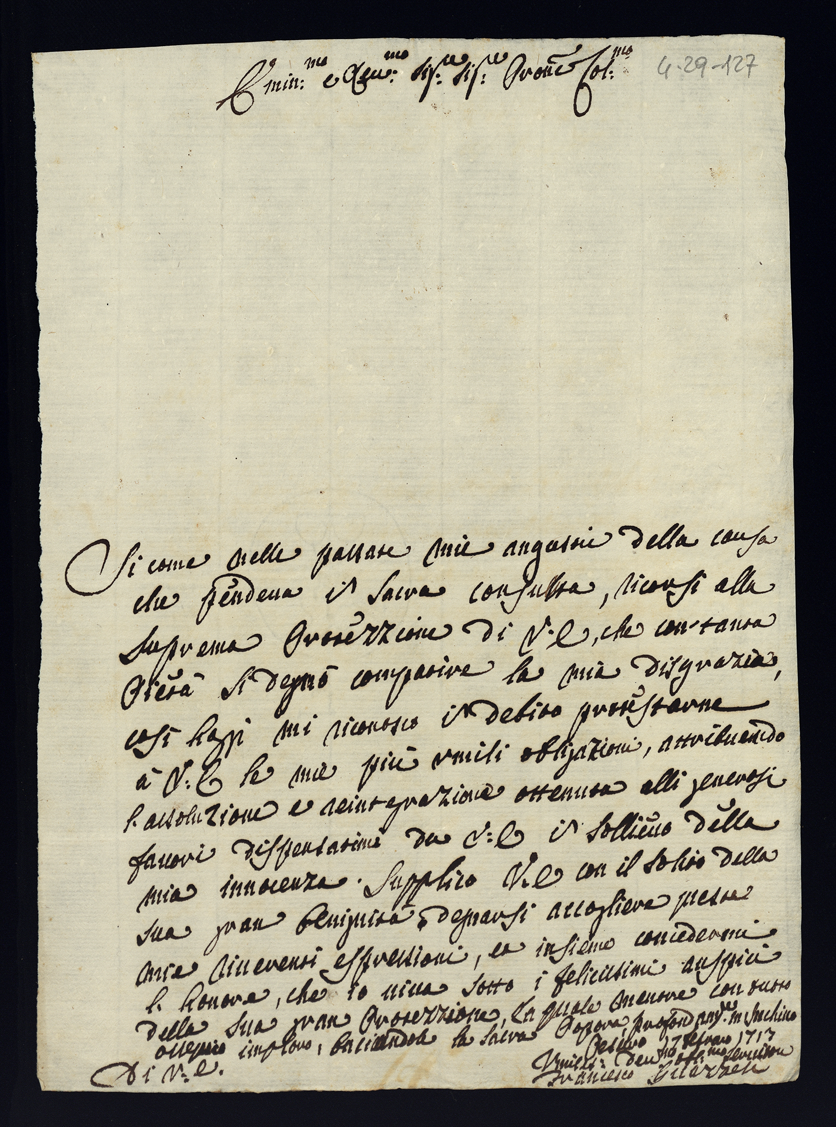 Emin:mo e Reu:mo Sig:re Sig:re Prone Col:mo
4-29-127
Si come nelle passate mie angustie della causa
che pendeua in Sacra consulta, ricorsi alla
suprema Protezzione di V:E, che con tanta
Pietà si degnò compatire la mia disgrazia,
così hoggi mi riconosco in debito protestarne
à V:E le mie più umili obligazioni, attribuendo
l'assoluzione e reintegrazione ottenuta alli generosi
fauori dispensatimi da V:E in sollieuo della
mia innocenza. Supplico V.E con il solito della
sua gran Benignità degnarsi accogliere queste
mie riuerenti espressioni, et insieme concedermi
l'honore, che io uiua sotto i felicissimi auspici
della sua gran Protezzione, la quale mentre con tutto
ossequio imploro, baciandole la Sacra Porpora, profond.m.te m'inchino
Di V:E.
Pesaro 17 Febraro 1713
Vmilis: Deu:mo Obb:mo Seruitore
Francesco